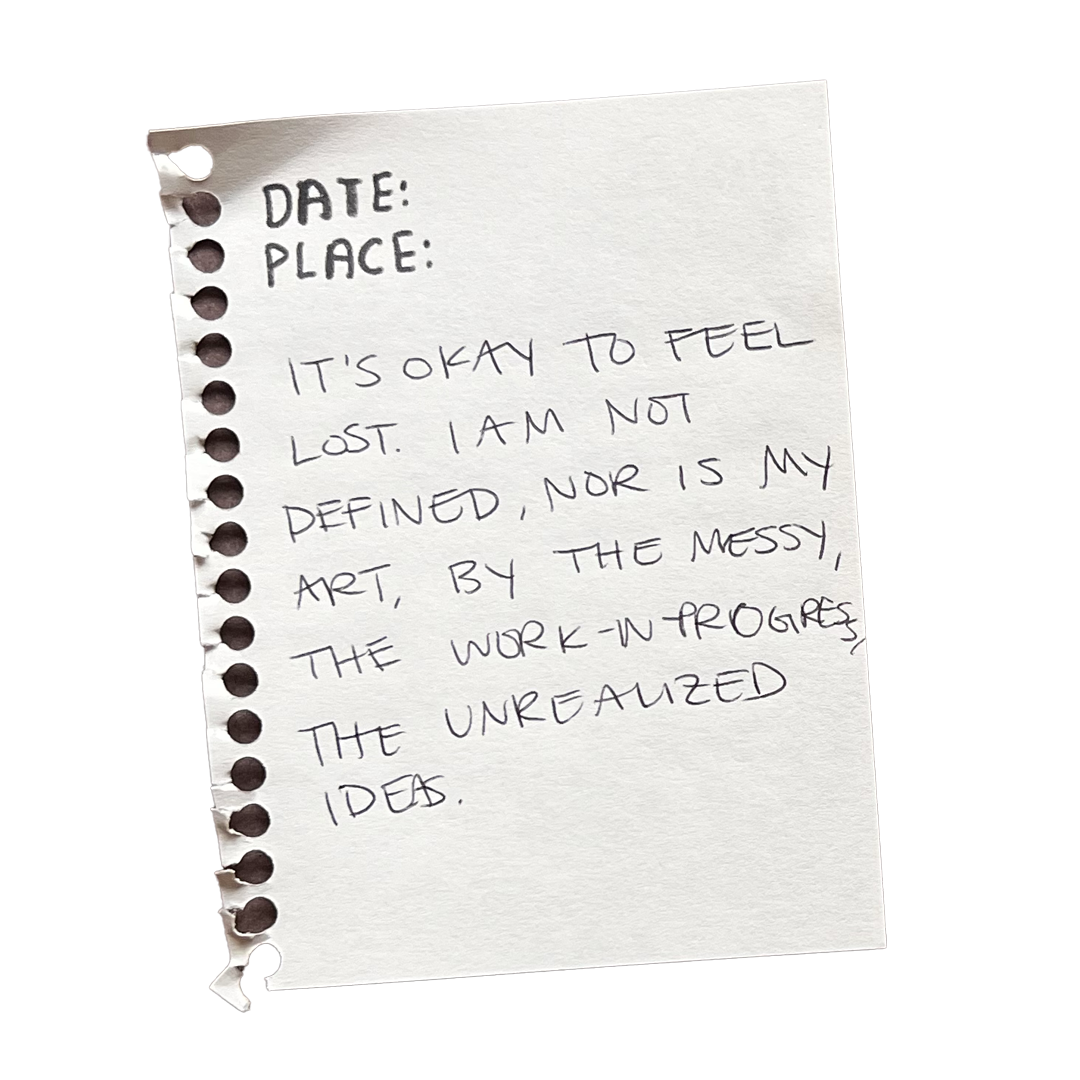 DATE:
PLACE:
IT'S OKAY TO FEEL
LOST. I AM NOT
DEFINED, NOR IS MY
ART, BY THE MESSY,
THE WORK-IN-PROGRESS,
THE UNREALIZED
IDEAS.